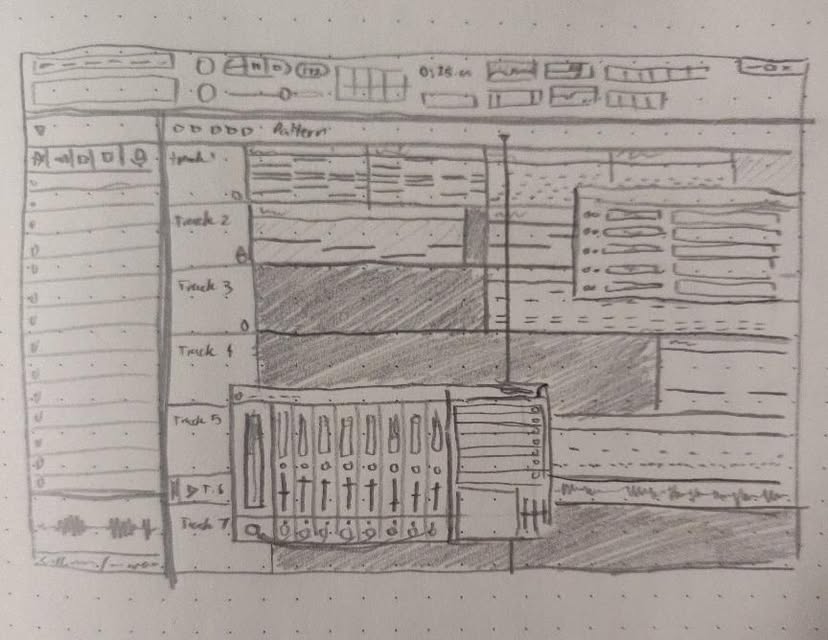 Pattern
Track 1
Track 2
Track 3
Track 4
Track 5
T.6
Track 7